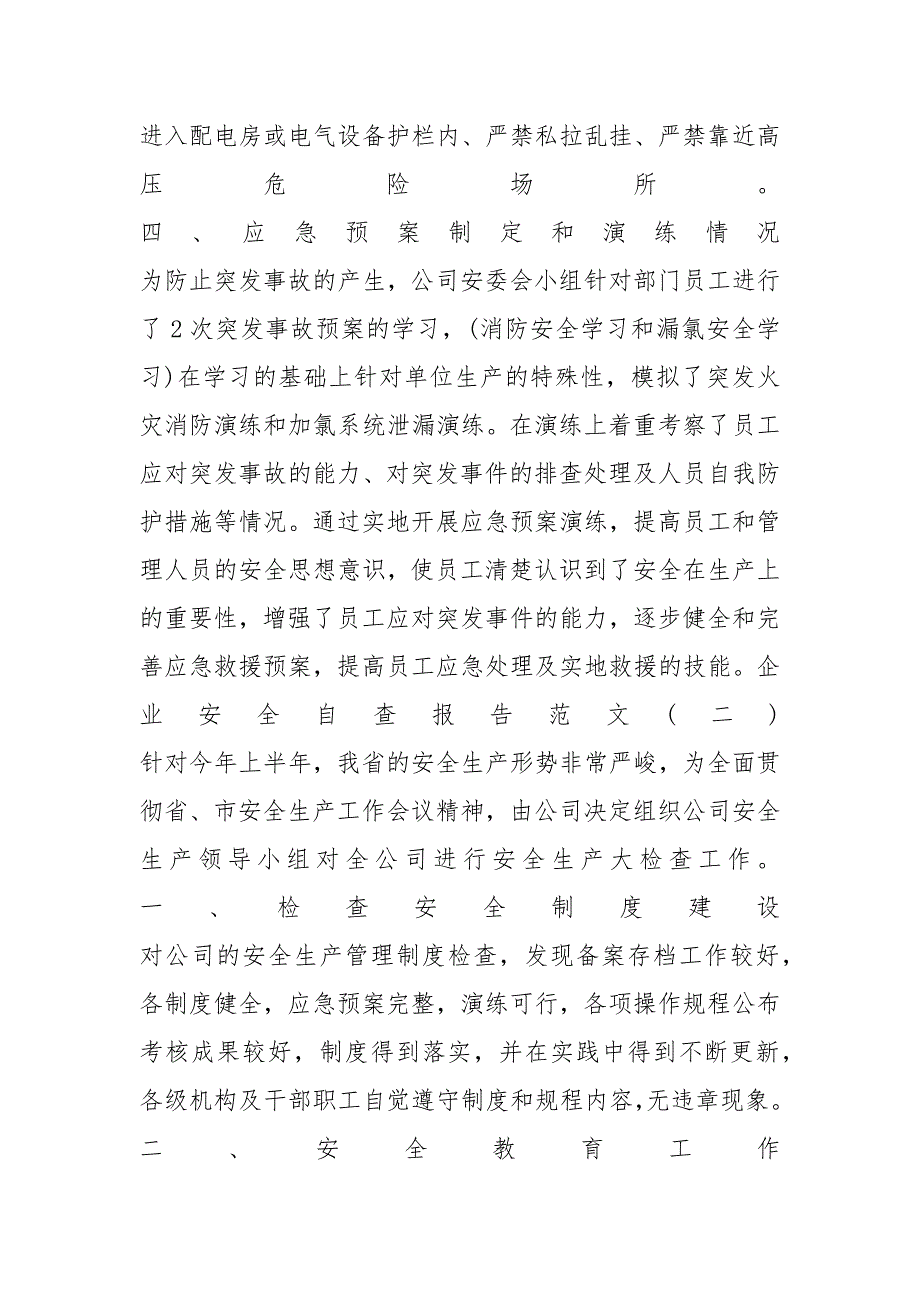 进入配电房或电气设备护栏内、严禁私拉乱挂、严禁靠近高
压危险场所。
四、应急预案制定和演练情况
为防止突发事故的产生，公司安委会小组针对部门员工进行
了 2 次突发事故预案的学习，(消防安全学习和漏氯安全学
习)在学习的基础上针对单位生产的特殊性，模拟了突发火
灾消防演练和加氯系统泄漏演练。在演练上着重考察了员工
应对突发事故的能力、对突发事件的排查处理及人员自我防
护措施等情况。通过实地开展应急预案演练，提高员工和管
理人员的安全思想意识，使员工清楚认识到了安全在生产上
的重要性，增强了员工应对突发事件的能力，逐步健全和完
善应急救援预案，提高员工应急处理及实地救援的技能。企
业安全自查报告范文(二)
针对今年上半年，我省的安全生产形势非常严峻，为全面贯
彻省、市安全生产工作会议精神，由公司决定组织公司安全
生产领导小组对全公司进行安全生产大检查工作。
一、检查安全制度建设
对公司的安全生产管理制度检查，发现备案存档工作较好，
各制度健全，应急预案完整，演练可行，各项操作规程公布
考核成果较好，制度得到落实，并在实践中得到不断更新，
各级机构及干部职工自觉遵守制度和规程内容，无违章现象。
二、安全教育工作